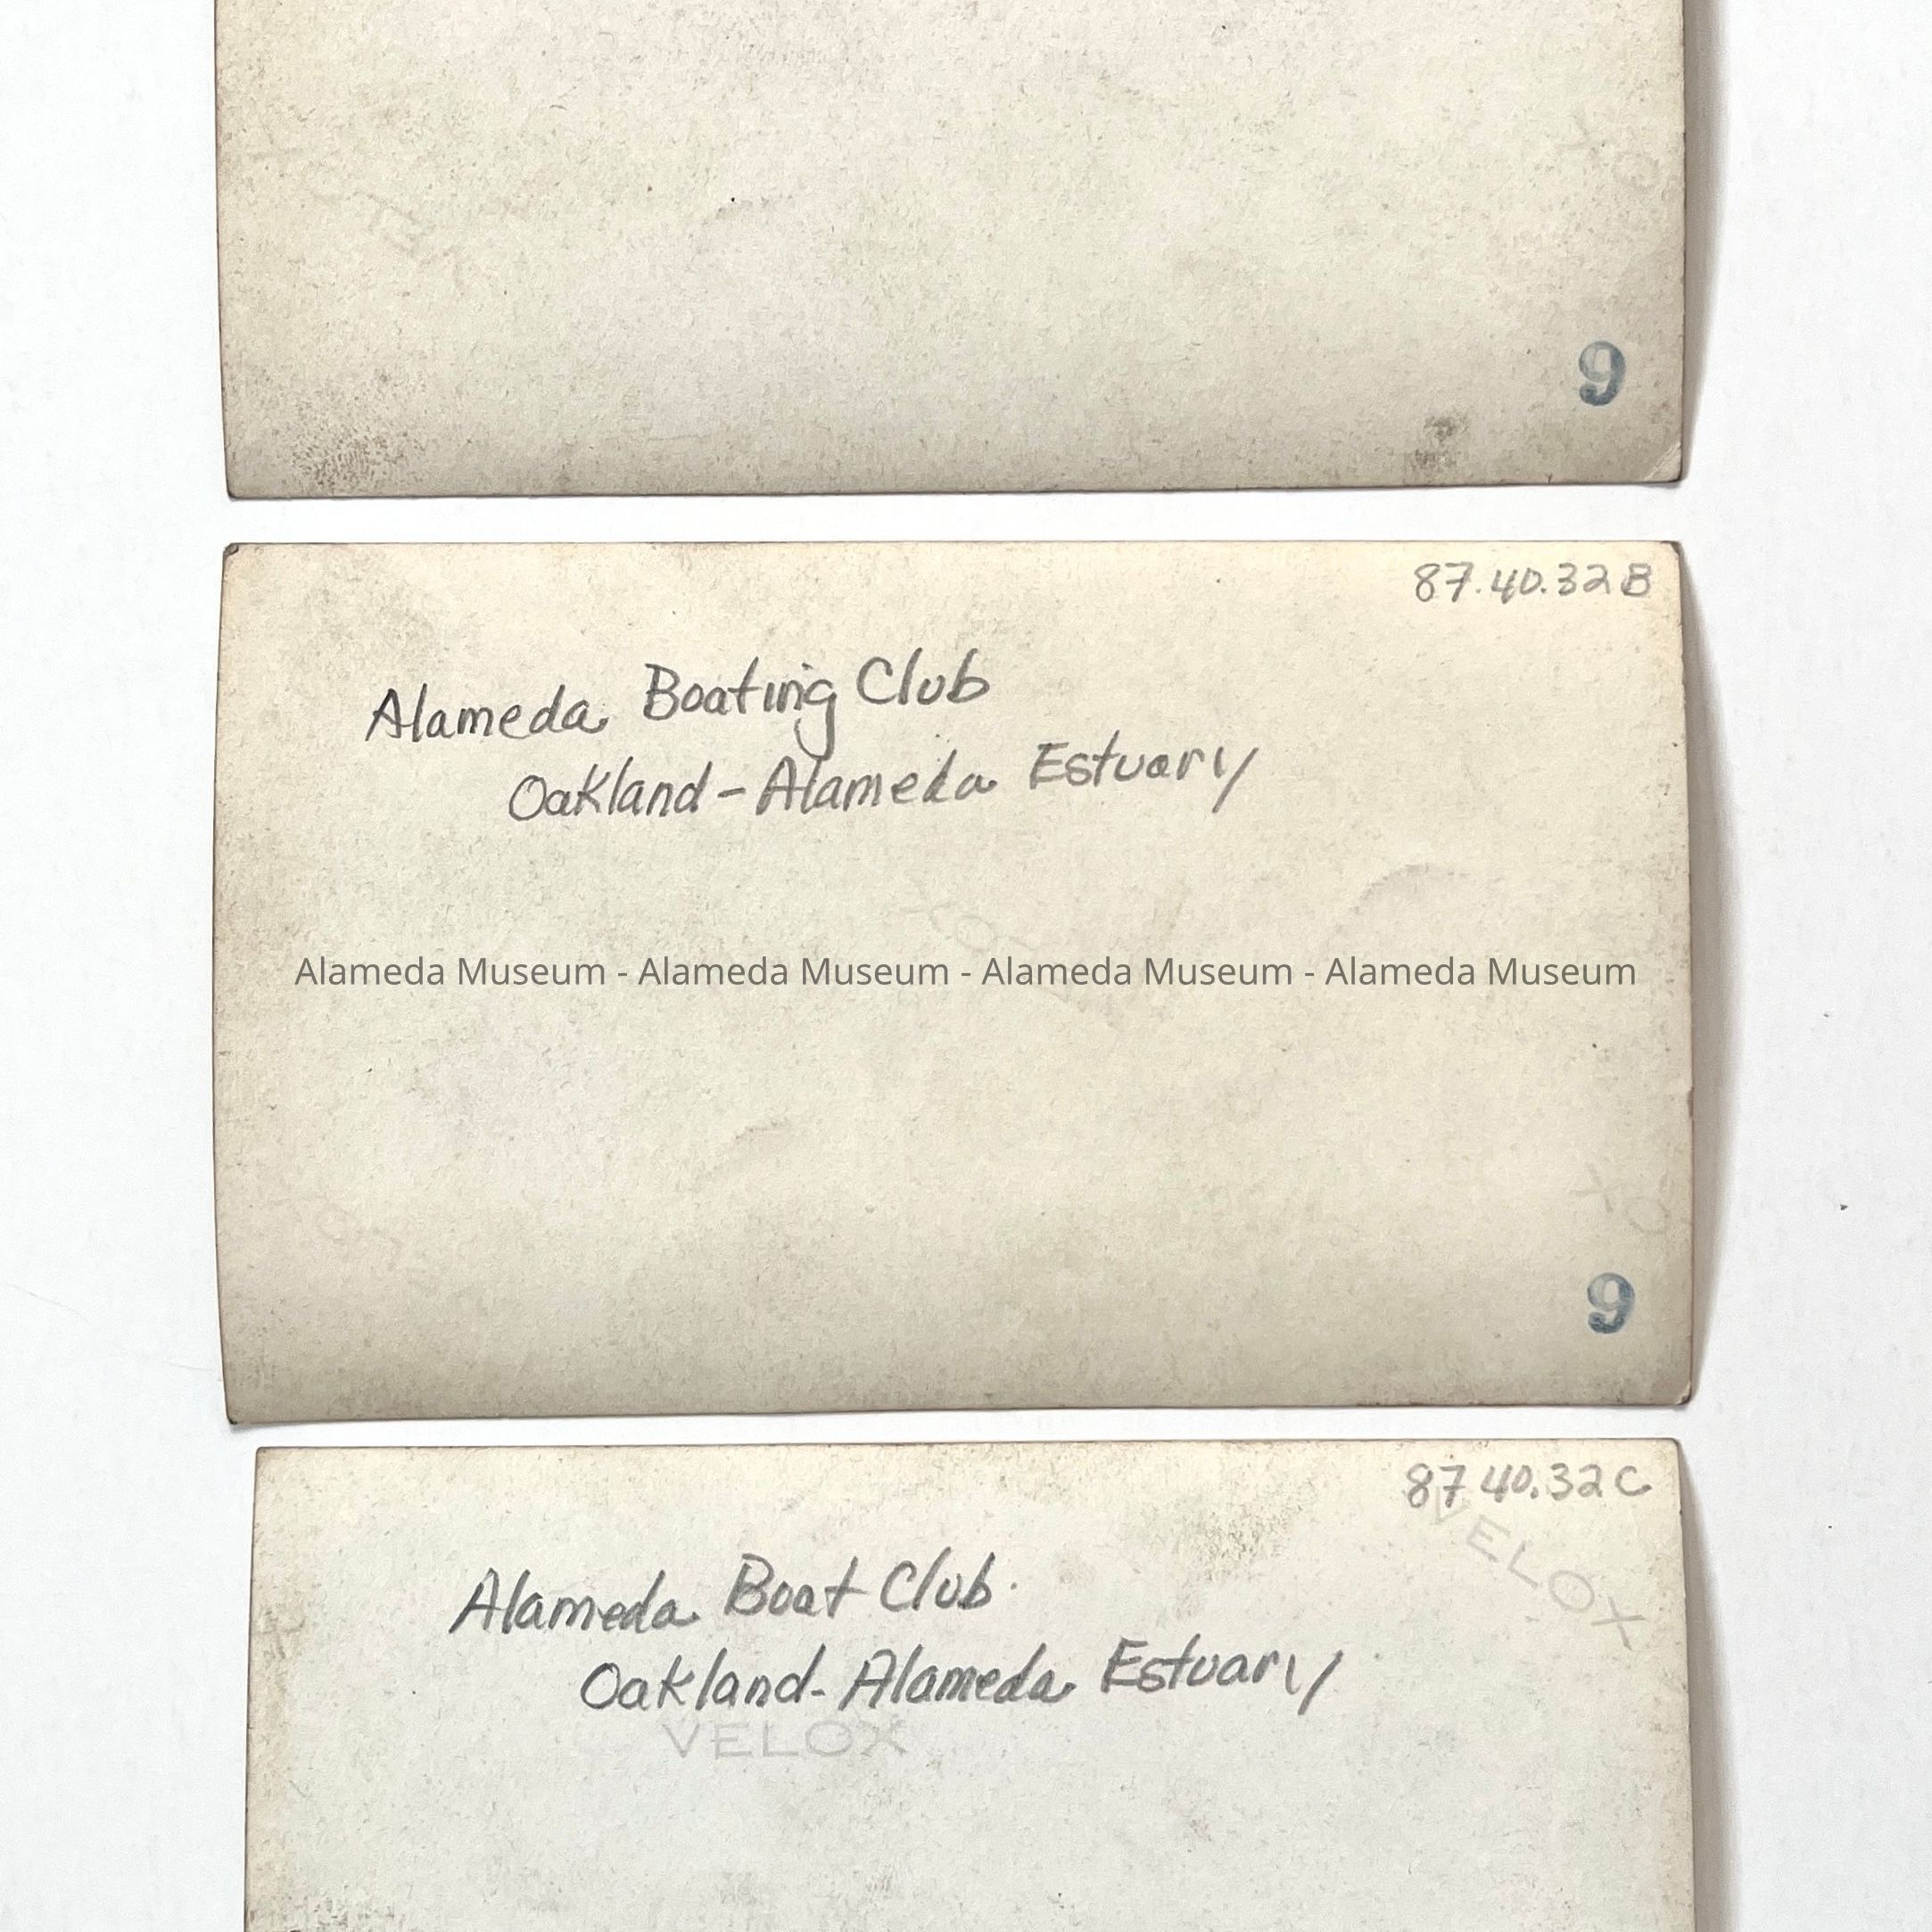 9
87.40.32B
Alameda Boating Club
Oakland-Alameda Estuary
Alameda Museum - Alameda Museum - Alameda Museum - Alameda Museum
9
87 40.32C
VELOX
Alameda Boat Club.
Oakland-Alameda Estuary
VELOX